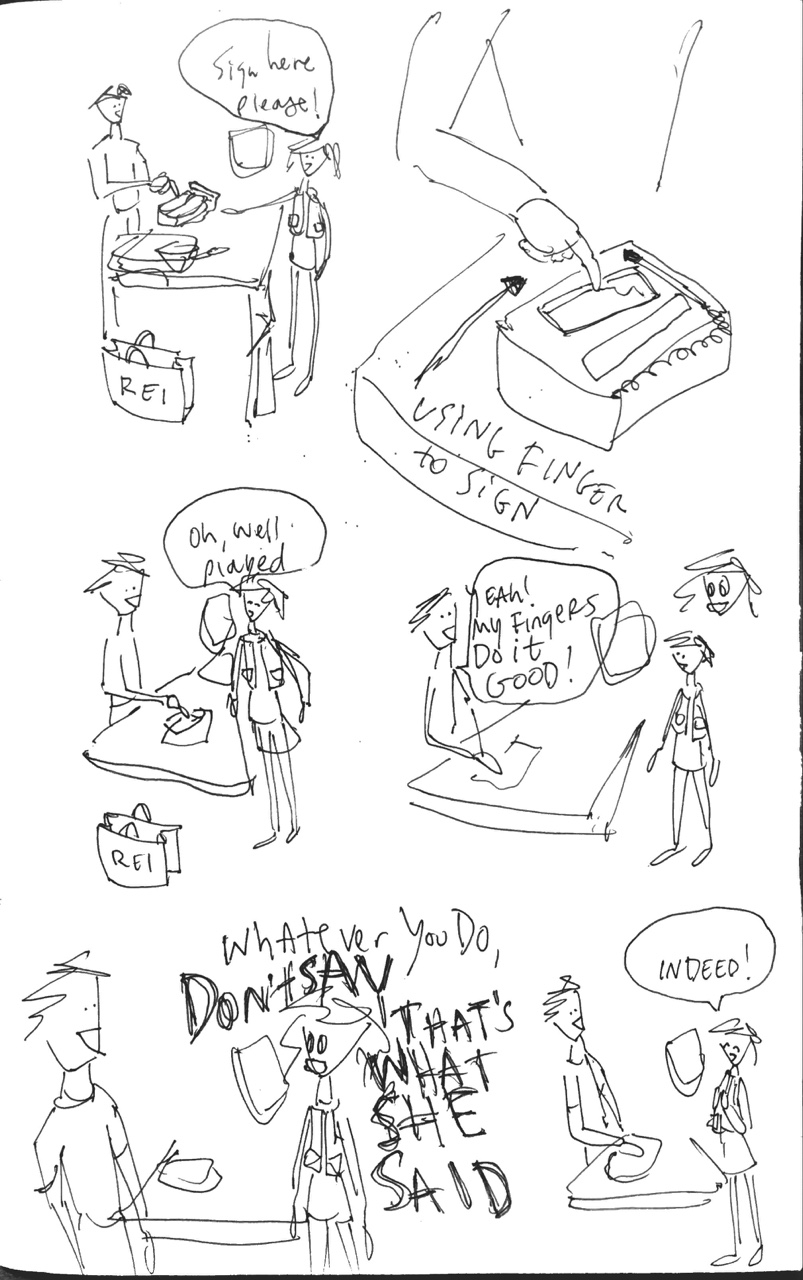 Sign here
please!
REI
USING FINGER
to SIGN
Oh, well
played
REI
YEAH!
My Fingers
Do it
GOOD!
Whatever You Do,
DON't SAY
THAT'S
WHAT
SHE
SAID
INDEED!